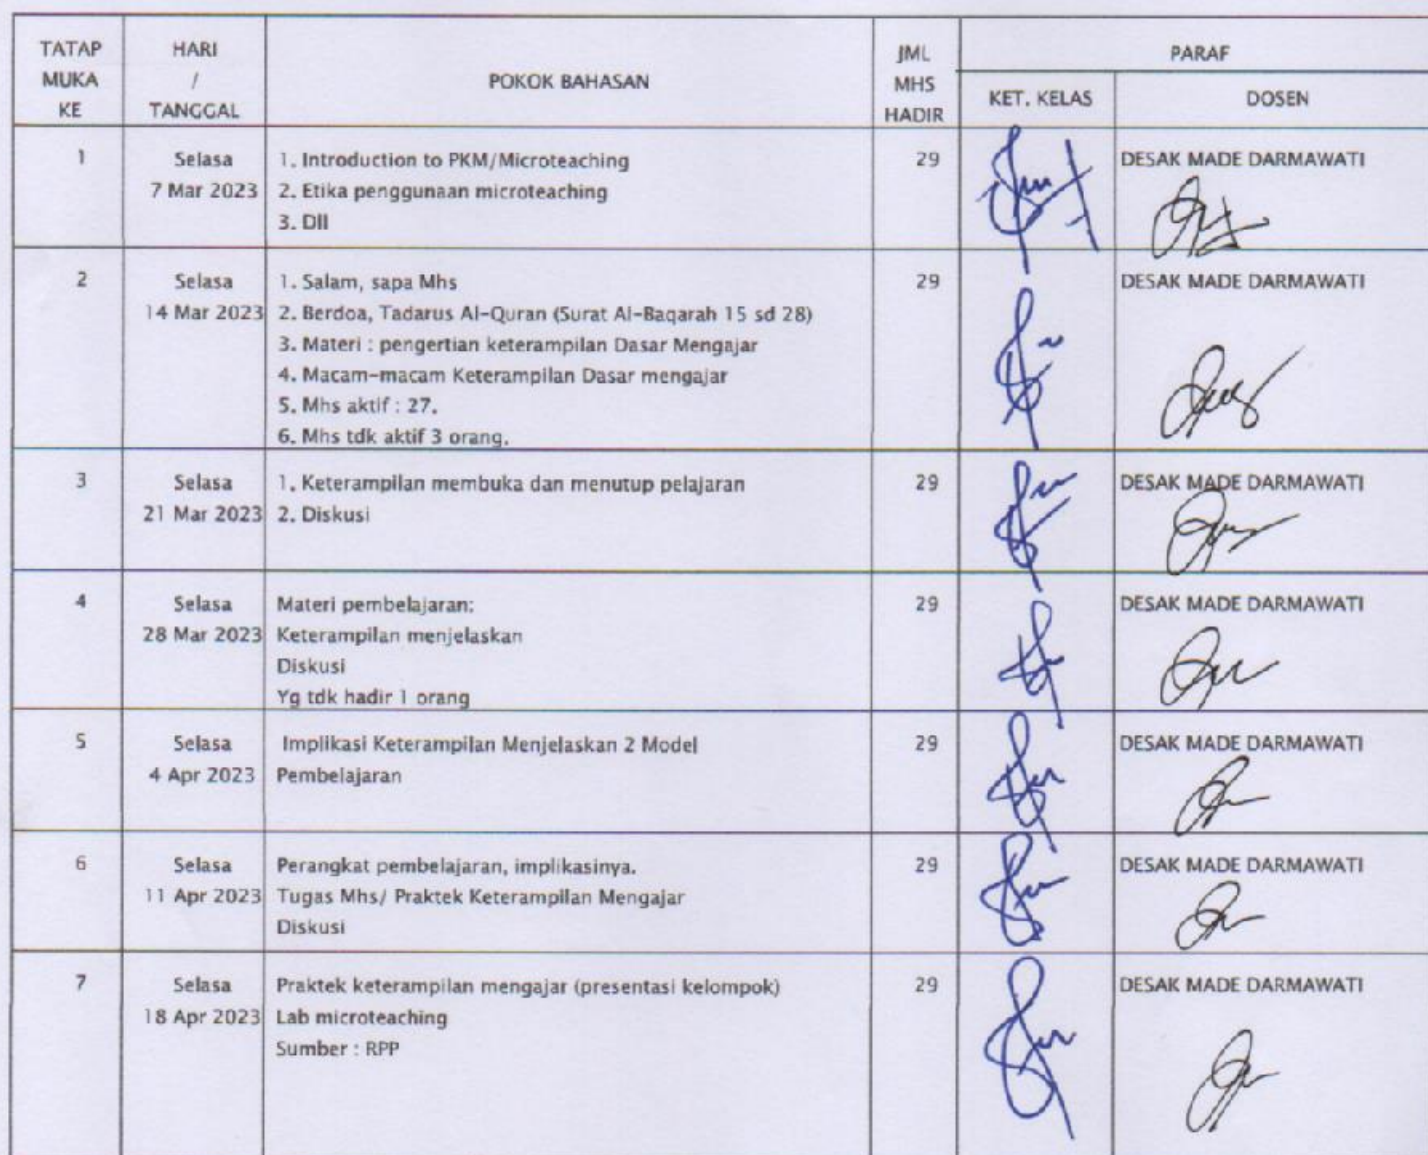 TATAP MUKA KE
HARI / TANGGAL
POKOK BAHASAN
JML MHS HADIR
PARAF
KET. KELAS
DOSEN
1
Selasa
7 Mar 2023
1. Introduction to PKM/Microteaching
2. Etika penggunaan microteaching
3. Dll
29
DESAK MADE DARMAWATI
2
Selasa
14 Mar 2023
1. Salam, sapa Mhs
2. Berdoa, Tadarus Al-Quran (Surat Al-Baqarah 15 sd 28)
3. Materi : pengertian keterampilan Dasar Mengajar
4. Macam-macam Keterampilan Dasar mengajar
5. Mhs aktif : 27.
6. Mhs tdk aktif 3 orang.
29
DESAK MADE DARMAWATI
3
Selasa
21 Mar 2023
1. Keterampilan membuka dan menutup pelajaran
2. Diskusi
29
DESAK MADE DARMAWATI
4
Selasa
28 Mar 2023
Materi pembelajaran:
Keterampilan menjelaskan
Diskusi
Yg tdk hadir 1 orang
29
DESAK MADE DARMAWATI
5
Selasa
4 Apr 2023
Implikasi Keterampilan Menjelaskan 2 Model
Pembelajaran
29
DESAK MADE DARMAWATI
6
Selasa
11 Apr 2023
Perangkat pembelajaran, implikasinya.
Tugas Mhs/ Praktek Keterampilan Mengajar
Diskusi
29
DESAK MADE DARMAWATI
7
Selasa
18 Apr 2023
Praktek keterampilan mengajar (presentasi kelompok)
Lab microteaching
Sumber : RPP
29
DESAK MADE DARMAWATI